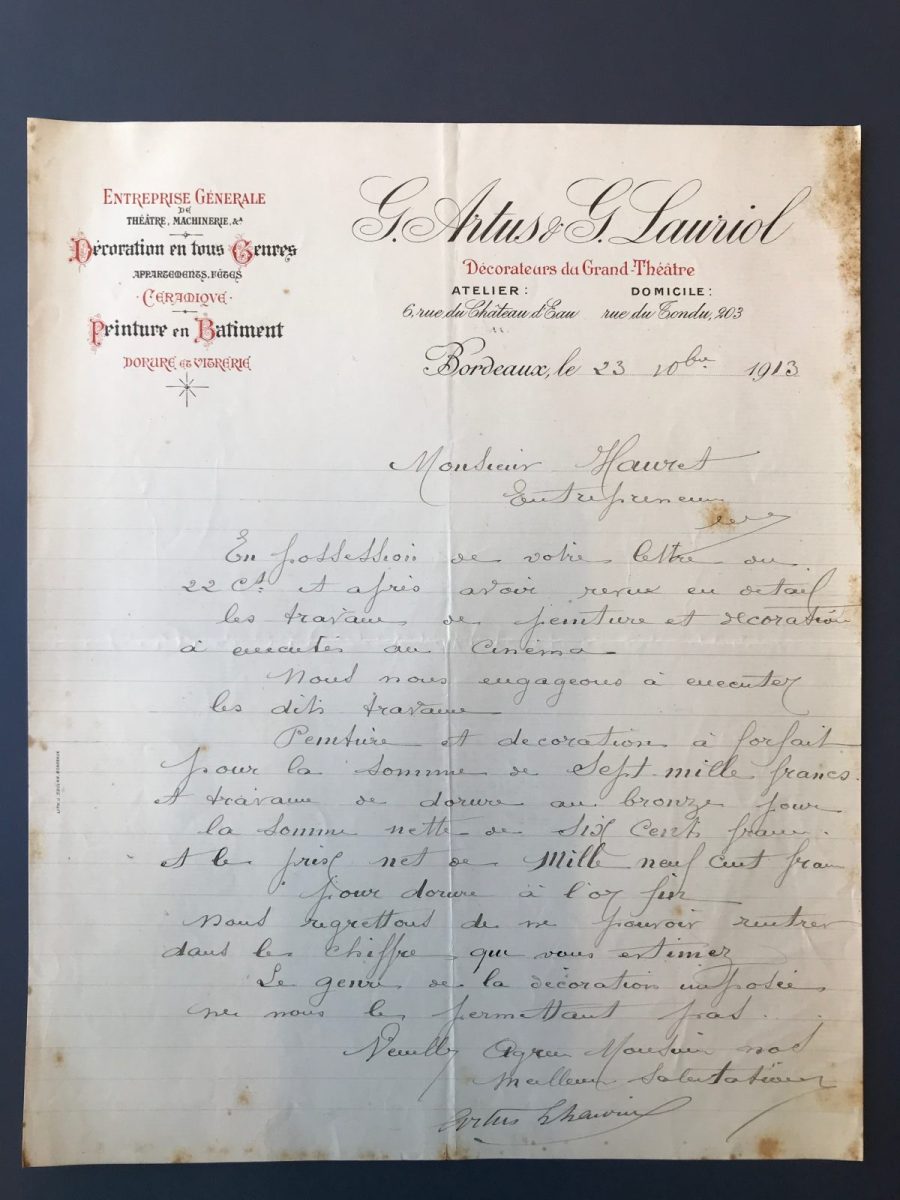 ENTREPRISE GÉNÉRALE
DE
THÉÂTRE, MACHINERIE, &ᵃ
Décoration en tous Genres
APPARTEMENTS, FÊTES
CÉRAMIQUE
Peinture en Batiment
DORURE ET VITRERIE
G. Artus & G. Lauriol
Décorateurs du Grand-Théâtre
ATELIER : DOMICILE :
6, rue du Château d'Eau rue du Tondu, 203
Bordeaux, le 23 10bre 1913
Monsieur Hauret
Entrepreneur
En possession de votre lettre du
22 Ct et après avoir revue en detail
les travaux de peinture et décoration
à executés au Cinéma
Nous nous engageons à executer
les dits travaux
Peinture et decoration à forfait
pour la somme de Sept mille francs
et travaux de dorure au bronze pour
la somme nette de Six Cent francs
et le prix net de Mille neuf cent francs
pour dorure à l'or fin
Nous regrettons de ne pouvoir rentrer
dans le chiffre que vous estimez
Le genre de la décoration imposée
ne nous le permettant pas.
Veuillez Agréer Monsieur nos
meilleures Salutations
Artus